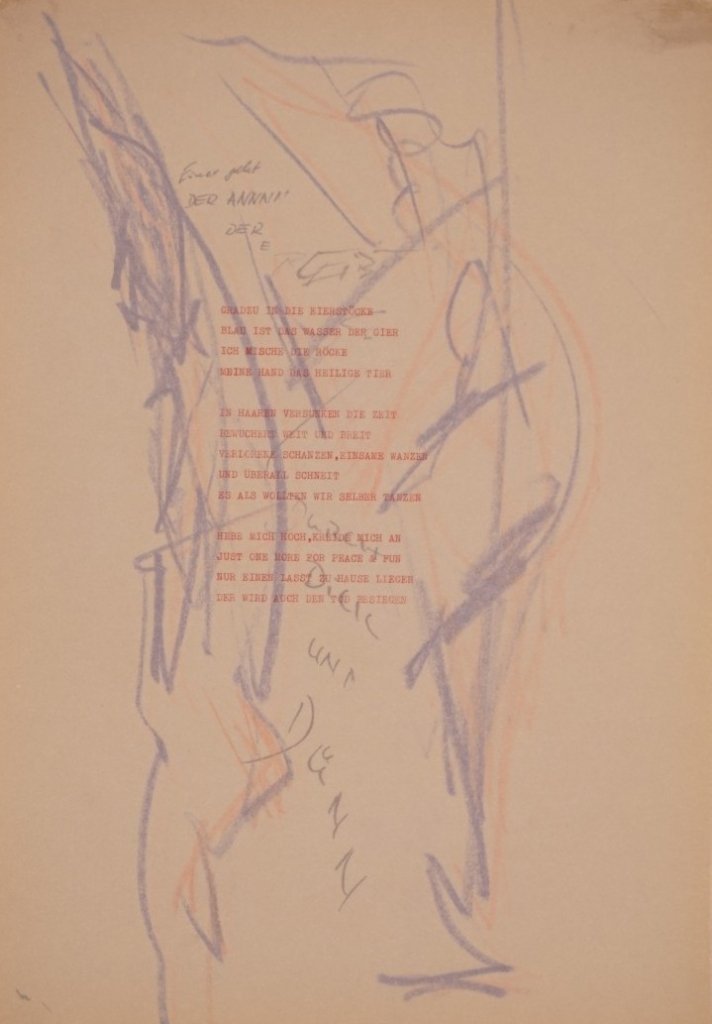 Einer geht
DER ANNNI
DER
E
GRADZU IN DIE EIERSTÖCKE
BLAU IST DAS WASSER DER GIER
ICH MISCHE DIE RÖCKE
MEINE HAND DAS HEILIGE TIER
IN HAAREN VERSUNKEN DIE ZEIT
BEWUCHERT WEIT UND BREIT
VERLORENE SCHANZEN, EINSAME WANZEN
UND ÜBERALL SCHNEIT
ES ALS WOLLTEN WIR SELBER TANZEN
HEBE MICH HOCH, KREIDE MICH AN
JUST ONE MORE FOR PEACE & FUN
NUR EINEN LASST ZU HAUSE LIEGEN
DER WIRD AUCH DEN TOD BESIEGEN
DURCH
DICK
UND
DÜNN